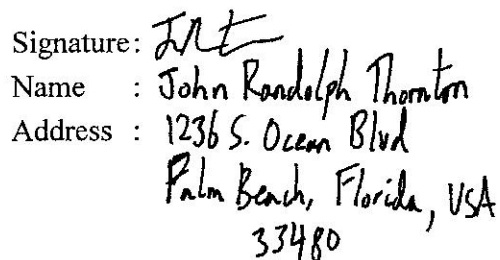 Signature:
Name : John Randolph Thornton
Address : 1236 S. Ocean Blvd
Palm Beach, Florida, USA
33480